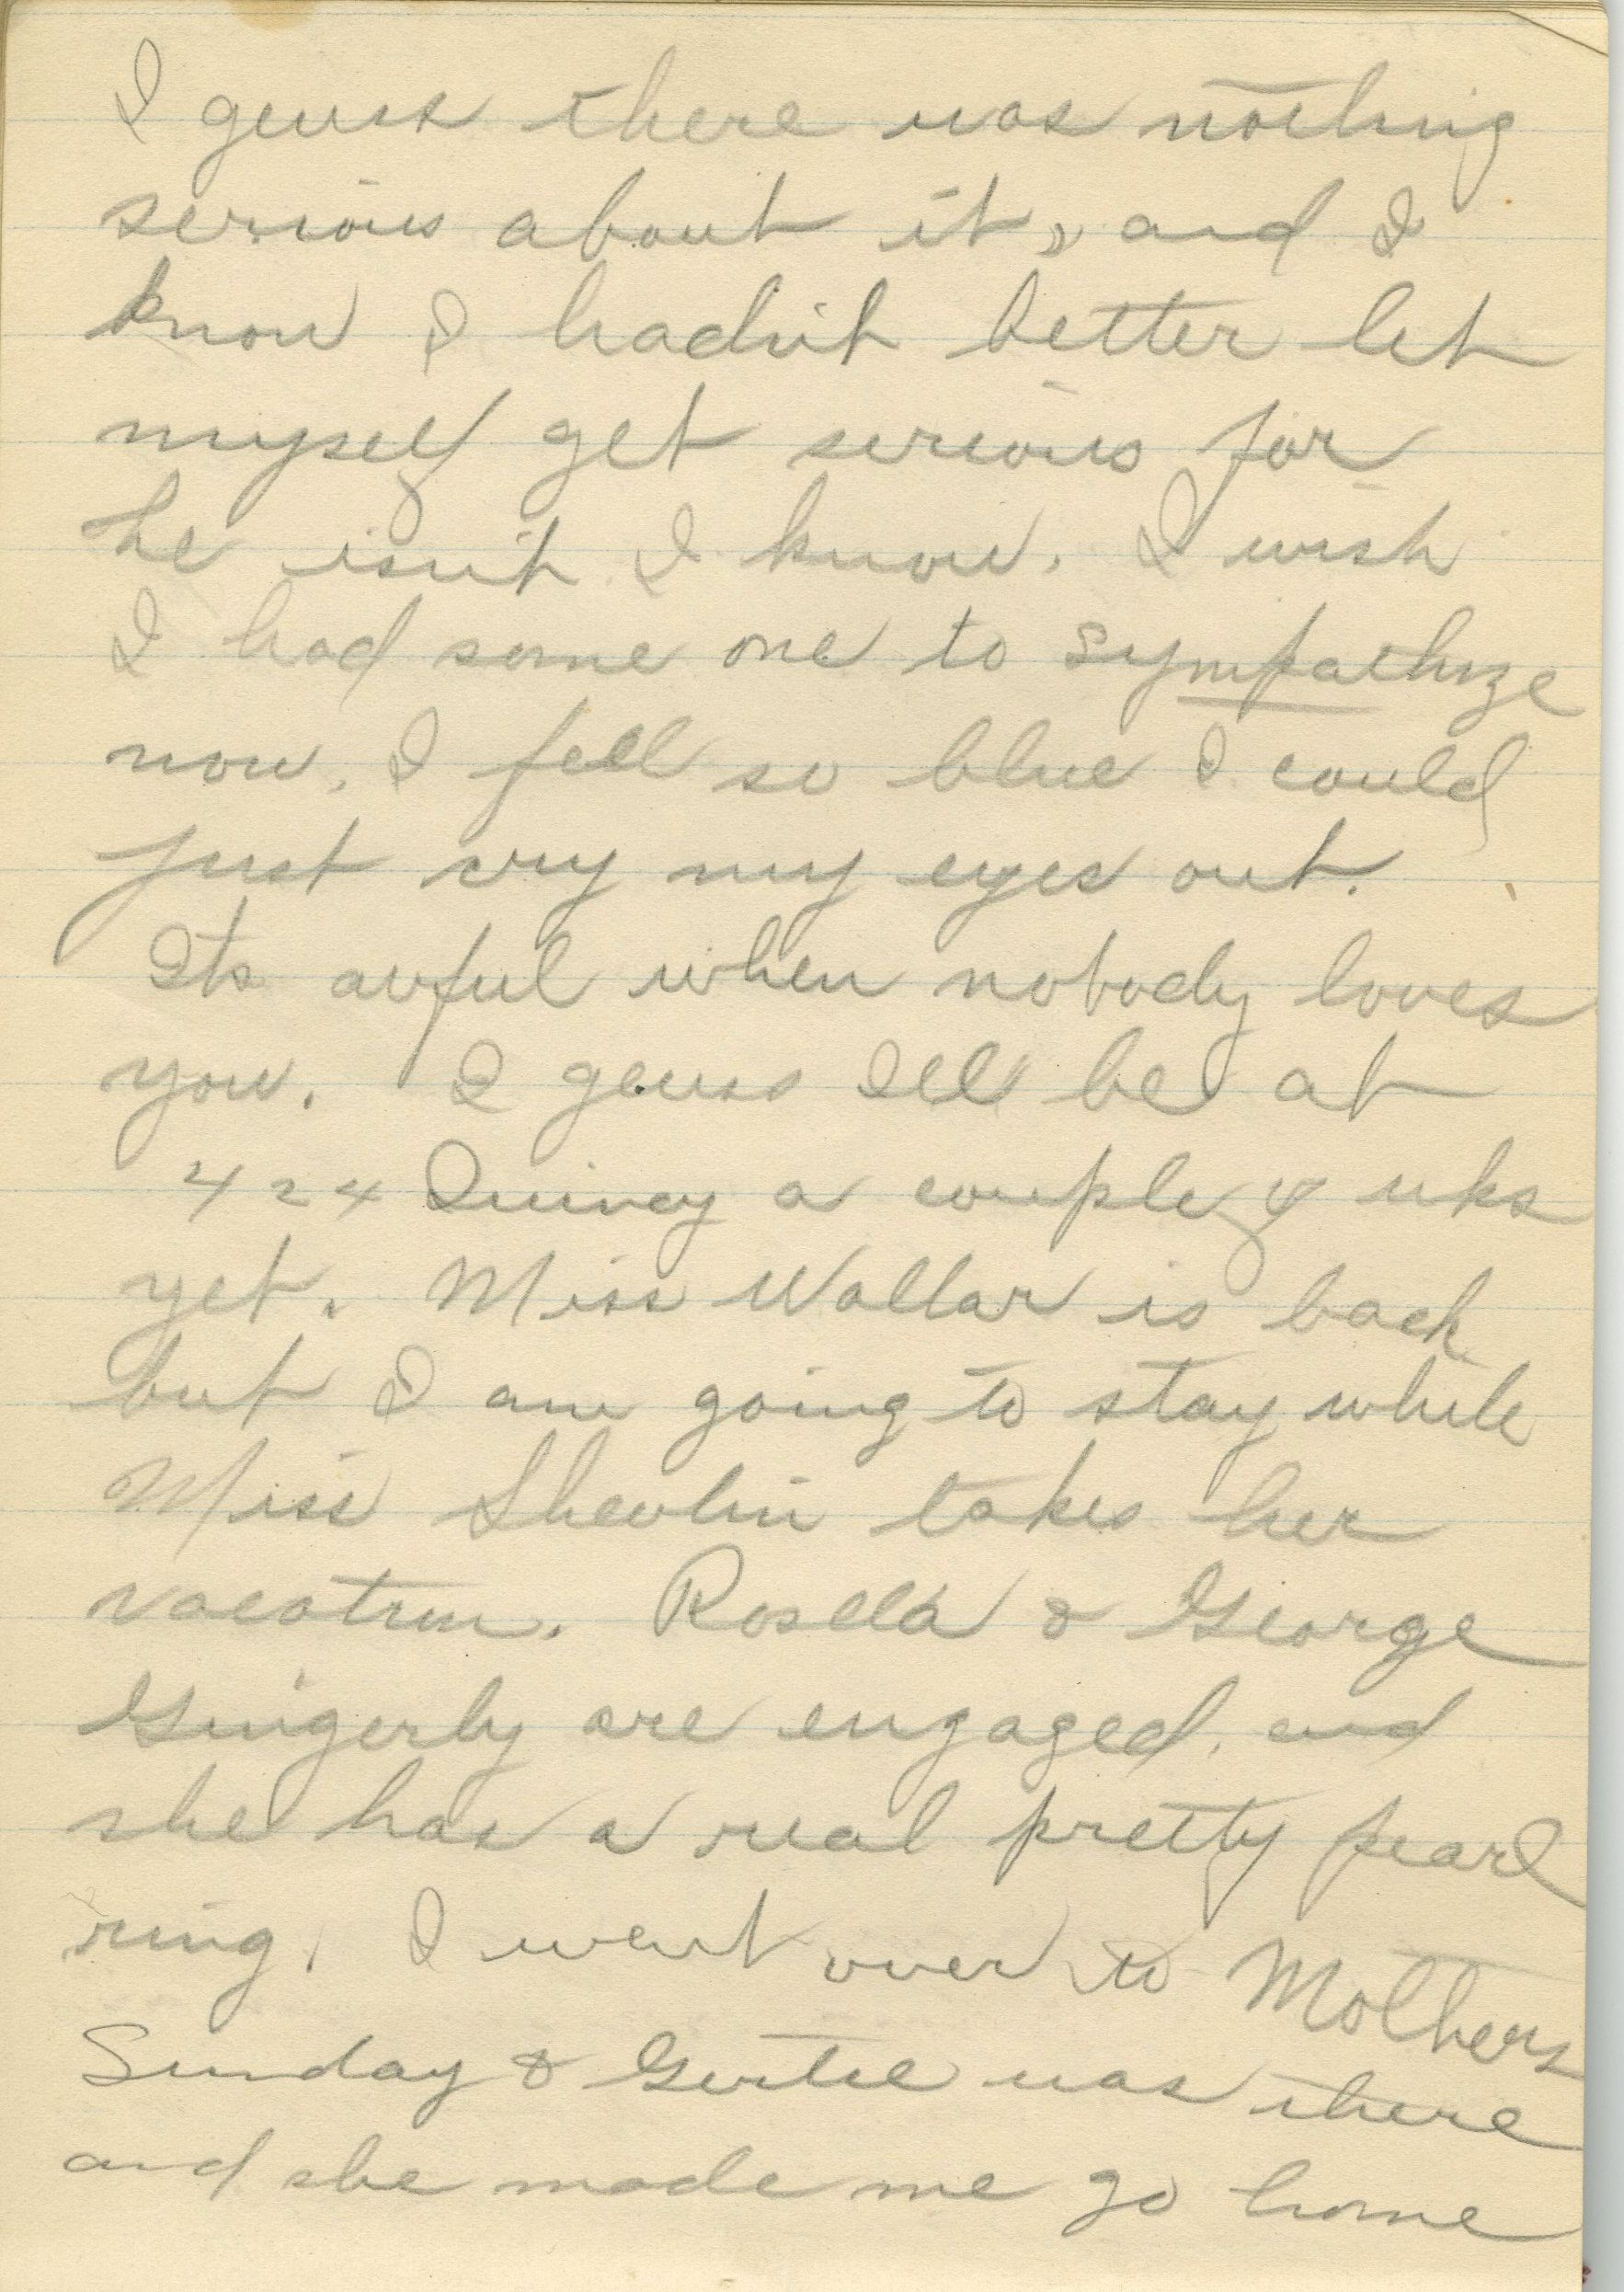 I geuss there was nothing
serious about it, and I
know I hadn't better let
myself get serious for
he isn't I know. I wish
I had some one to sympathize
now. I fell so blue I could
just cry my eyes out.
Its awful when nobody loves
you. I geuss Ill be at
424 Quincy a couple of wks
yet. Miss Wallar is back
but I am going to stay while
Miss Shevlin takes her
vacation. Rosella & George
Gingerly are engaged, and
she has a real pretty pearl
ring. I went over to Mothers
Sunday & Gertie was there
and she made me go home